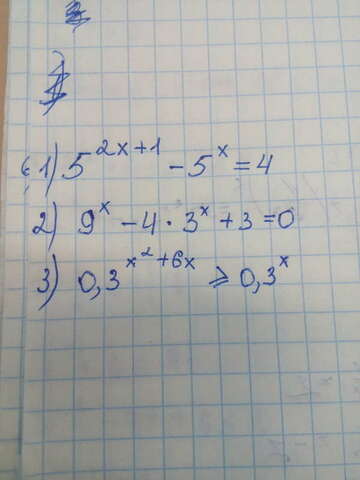 6,1) 5^{2x+1} - 5^x = 4
2) 9^x - 4 · 3^x + 3 = 0
3) 0,3^{x^2+6x} ⩾ 0,3^x